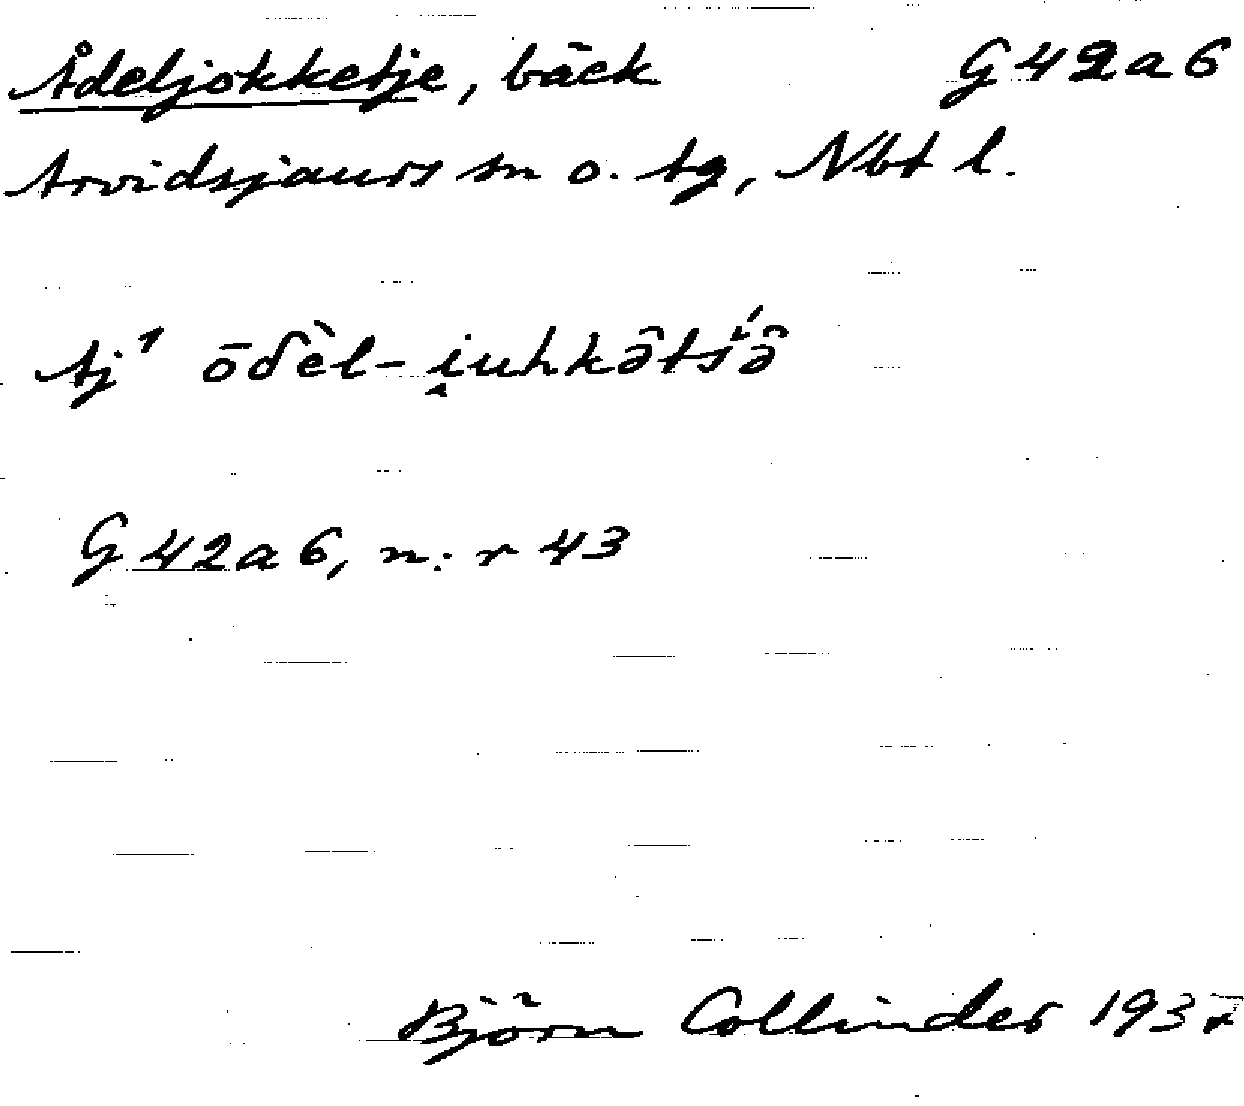 Ådeljokketje, bäck G 42 a 6
Arvidsjaurs sn o. tg, Nbt l.
Aj¹ ōdὲl-i̯uhkə̑tśə̑
G 42 a 6, n:r 43
Björn Collinder 1937